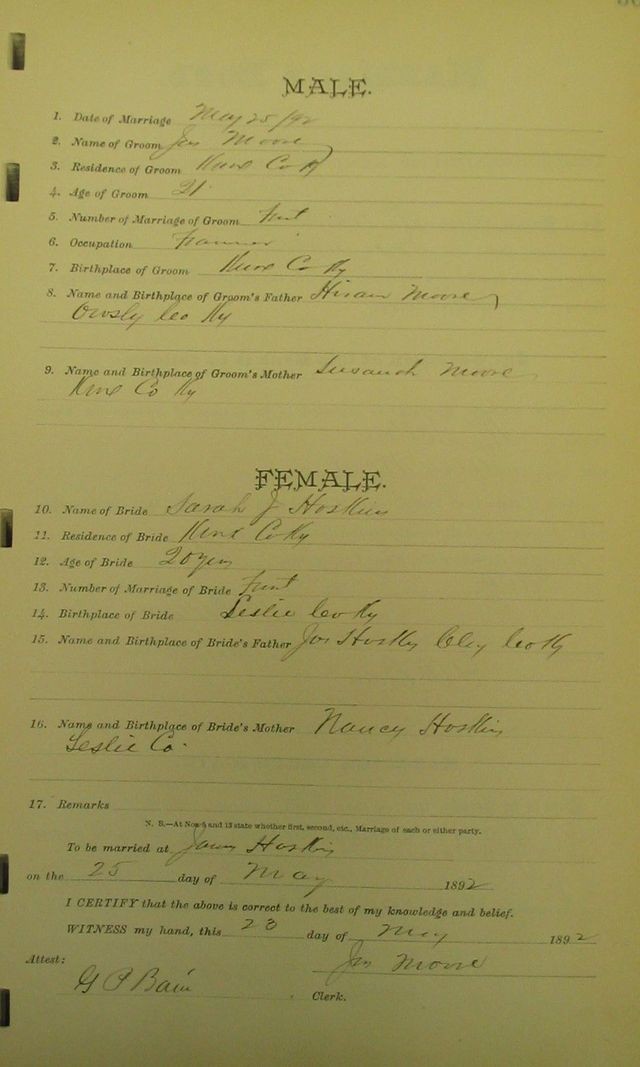 MALE.
1. Date of Marriage May 25/92
2. Name of Groom Jas Moore
3. Residence of Groom Knox Co Ky
4. Age of Groom 21
5. Number of Marriage of Groom First
6. Occupation Farmer
7. Birthplace of Groom Knox Co Ky
8. Name and Birthplace of Groom's Father Hiram Moore
Owsly Co Ky
9. Name and Birthplace of Groom's Mother Susanah Moore
Knox Co Ky
FEMALE.
10. Name of Bride Sarah J Hoskins
11. Residence of Bride Knox Co Ky
12. Age of Bride 20 yers
13. Number of Marriage of Bride First
14. Birthplace of Bride Leslie Co Ky
15. Name and Birthplace of Bride's Father Jas Hoskins Clay Co Ky
16. Name and Birthplace of Bride's Mother Nancy Hoskins
Leslie Co.
17. Remarks
N. B.—At Nos. 5 and 13 state whether first, second, etc., Marriage of each or either party.
To be married at James Hoskins
on the 25 day of May 1892
I CERTIFY that the above is correct to the best of my knowledge and belief.
WITNESS my hand, this 23 day of May 1892
Attest: Jas Moore
G P Bain Clerk.